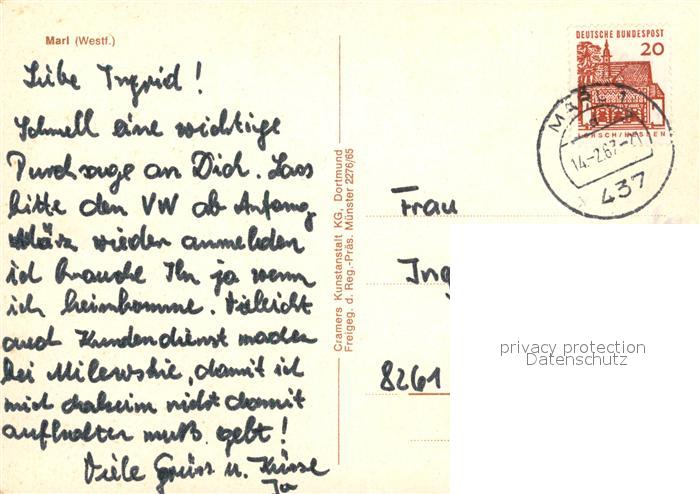 Marl (Westf.)
Liebe Ingrid!
Schnell eine wichtige
Durchsage an Dich. Lass
bitte den VW ab Anfang
März wieder anmelden
ich brauche Ihn ja wenn
ich heimkomme. Vieleicht
auch Kundendienst machen
bei Milewskie, damit ich
mich daheim nicht damit
aufhalten muß, gelt!
Viele Grüss u. Küsse
Cramers Kunstanstalt KG, Dortmund
Freigeg. d. Reg.-Präs. Münster 2276/65
DEUTSCHE BUNDESPOST
20
LORSCH/HESSEN
MARL
14.-2.67.-21
437
Frau
Ing
8261
privacy protection
Datenschutz